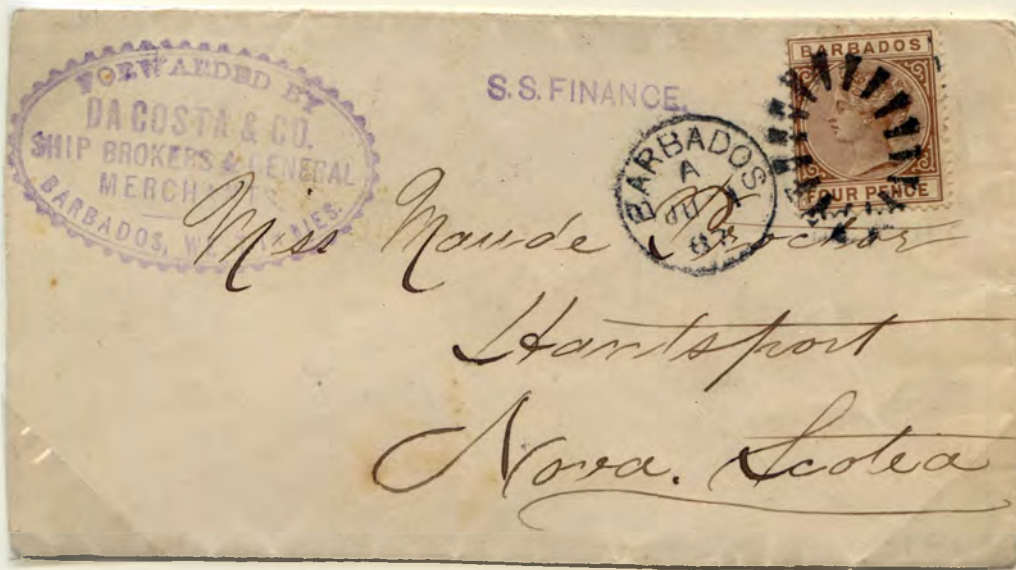 FORWARDED BY
DA COSTA & CO.
SHIP BROKERS & GENERAL
MERCHANTS
BARBADOS, WEST INDIES.
S.S. FINANCE.
BARBADOS
A
BARBADOS
FOUR PENCE
Miss Maude Proctor
Hantsport
Nova. Scotia